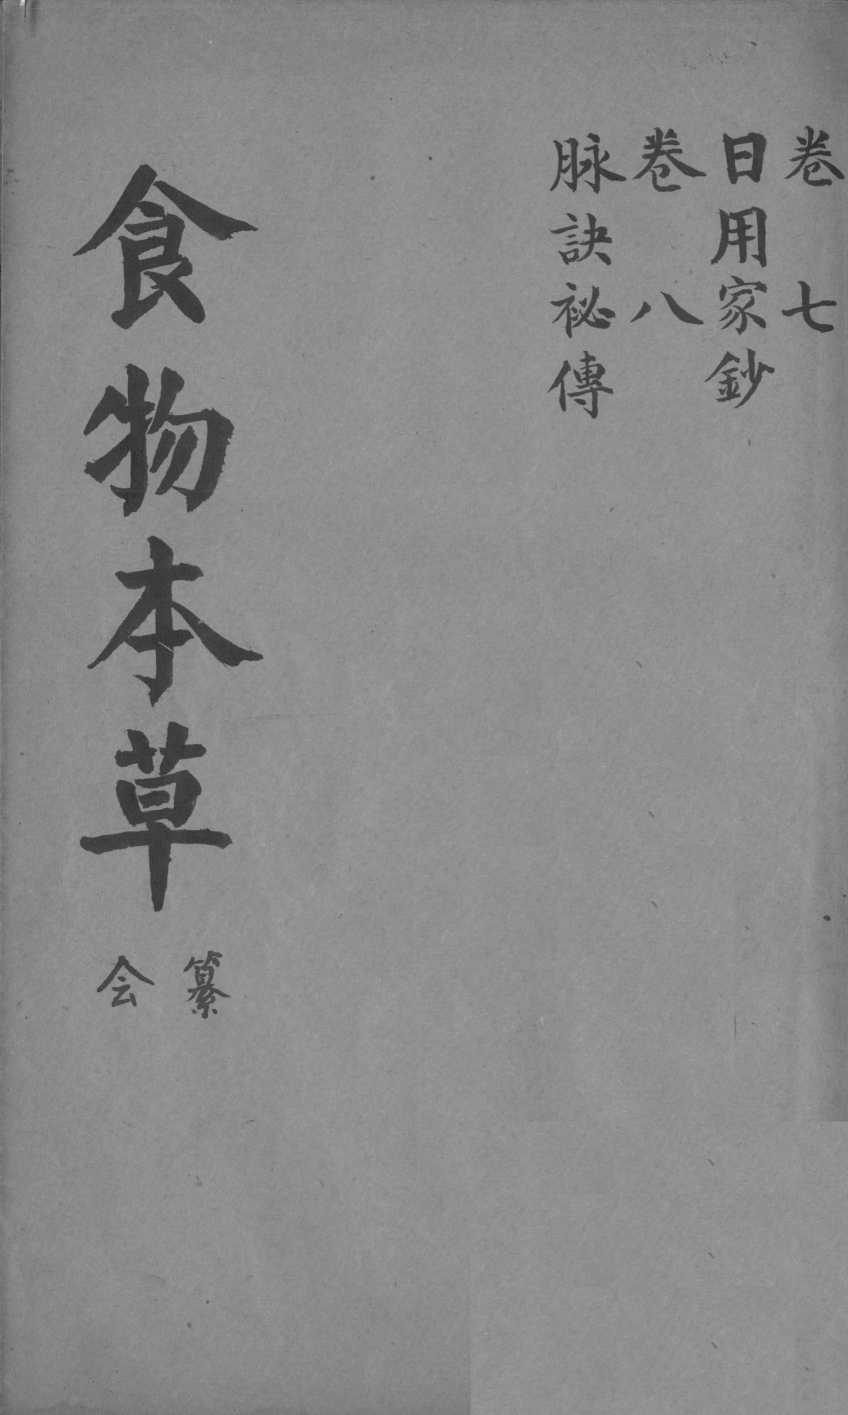 卷 七
日用家鈔
卷 八
脉訣祕傳
食物本草
纂
会